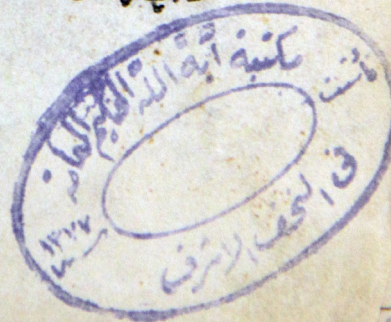 مكتبة آية الله الحكيم العامة
تأسست
في النجف الاشرف
سنة